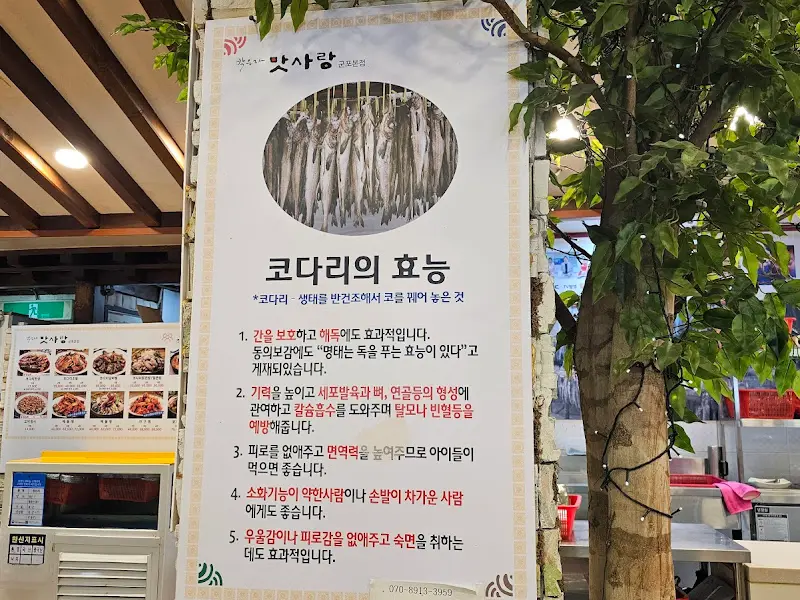 맛사랑 군포본점
코다리의 효능
*코다리 - 생태를 반건조해서 코를 꿰어 놓은 것
1. 간을 보호하고 해독에도 효과적입니다.
동의보감에도 “명태는 독을 푸는 효능이 있다”고
게재되있습니다.
2. 기력을 높이고 세포발육과 뼈, 연골등의 형성에
관여하고 칼슘흡수를 도와주며 탈모나 빈혈등을
예방해줍니다.
3. 피로를 없애주고 면역력을 높여주므로 아이들이
먹으면 좋습니다.
4. 소화기능이 약한사람이나 손발이 차가운 사람
에게도 좋습니다.
5. 우울감이나 피로감을 없애주고 숙면을 취하는
데도 효과적입니다.
070-8913-3959
맛사랑
원산지표시